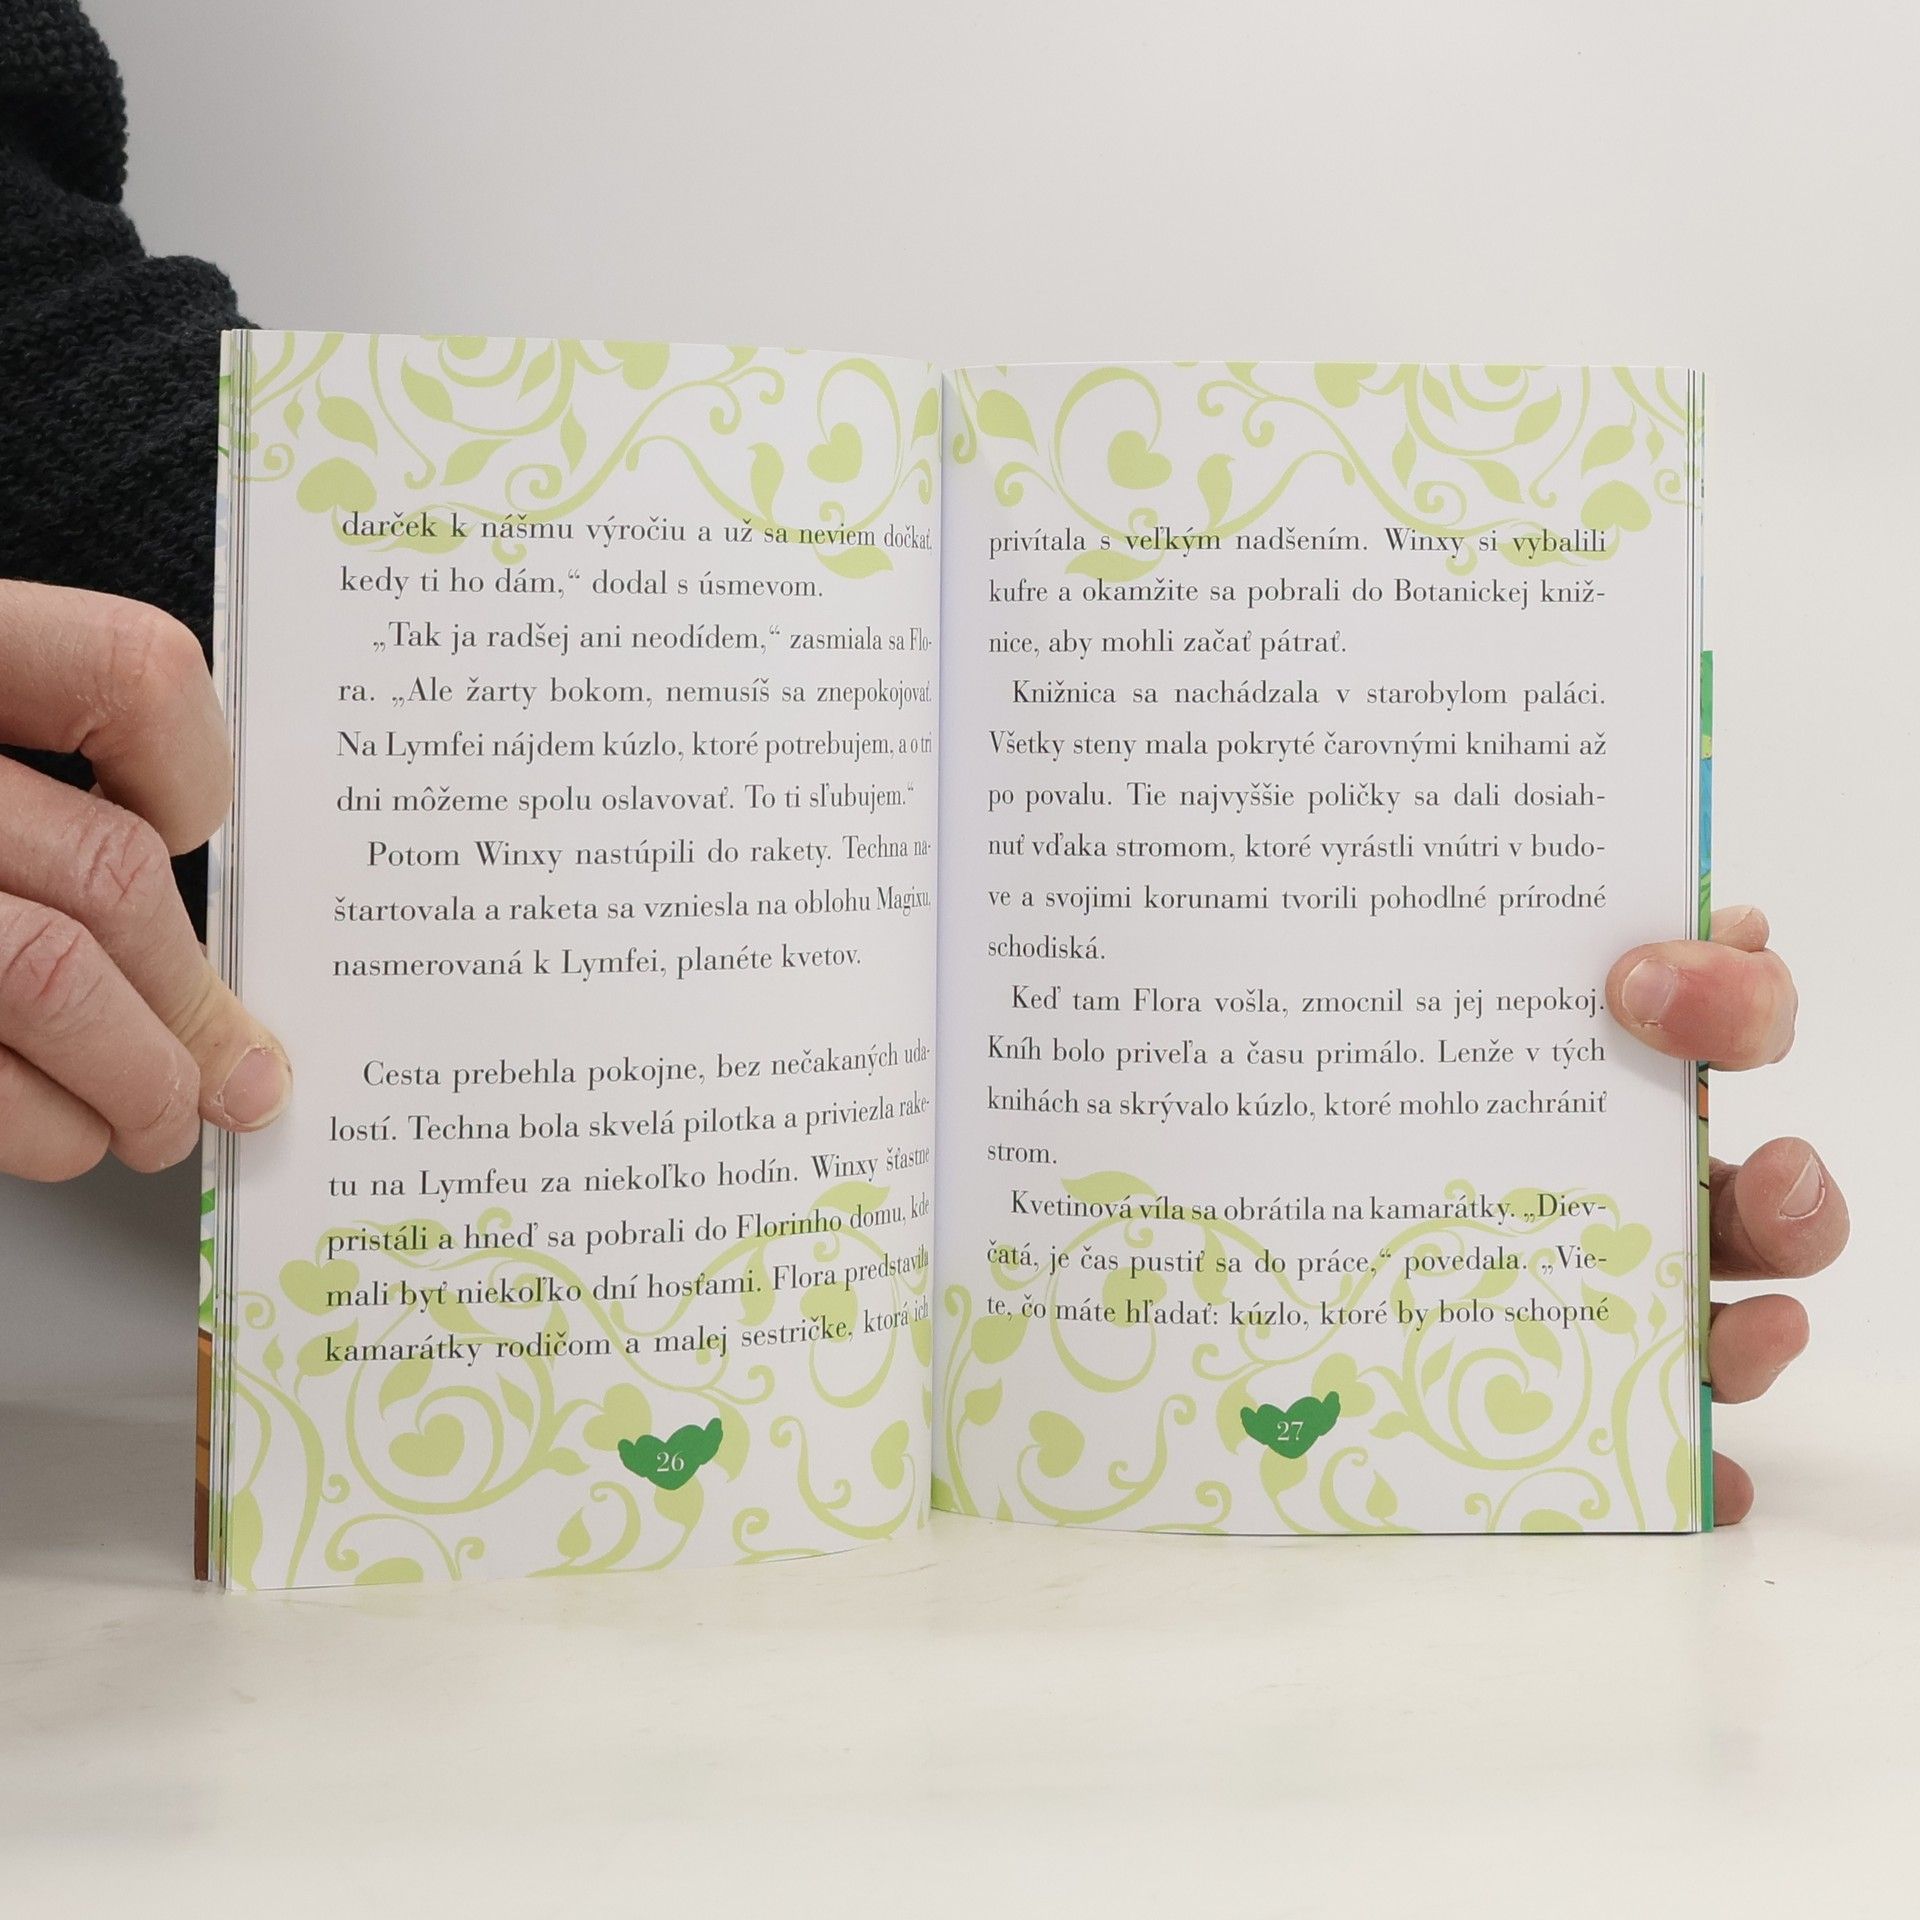 darček k nášmu výročiu a už sa neviem dočkať,
kedy ti ho dám,“ dodal s úsmevom.
„Tak ja radšej ani neodídem,“ zasmiala sa Flo-
ra. „Ale žarty bokom, nemusíš sa znepokojovať.
Na Lymfei nájdem kúzlo, ktoré potrebujem, a o tri
dni môžeme spolu oslavovať. To ti sľubujem.“
Potom Winxy nastúpili do rakety. Techna na-
štartovala a raketa sa vzniesla na oblohu Magixu,
nasmerovaná k Lymfei, planéte kvetov.
Cesta prebehla pokojne, bez nečakaných uda-
lostí. Techna bola skvelá pilotka a priviezla rake-
tu na Lymfeu za niekoľko hodín. Winxy šťastne
pristáli a hneď sa pobrali do Florinho domu, kde
mali byť niekoľko dní hosťami. Flora predstavila
kamarátky rodičom a malej sestričke, ktorá ich
26
privítala s veľkým nadšením. Winxy si vybalili
kufre a okamžite sa pobrali do Botanickej kniž-
nice, aby mohli začať pátrať.
Knižnica sa nachádzala v starobylom paláci.
Všetky steny mala pokryté čarovnými knihami až
po povalu. Tie najvyššie poličky sa dali dosiah-
nuť vďaka stromom, ktoré vyrástli vnútri v budo-
ve a svojimi korunami tvorili pohodlné prírodné
schodiská.
Keď tam Flora vošla, zmocnil sa jej nepokoj.
Kníh bolo priveľa a času primálo. Lenže v tých
knihách sa skrývalo kúzlo, ktoré mohlo zachrániť
strom.
Kvetinová víla sa obrátila na kamarátky. „Diev-
čatá, je čas pustiť sa do práce,“ povedala. „Vie-
te, čo máte hľadať: kúzlo, ktoré by bolo schopné
27